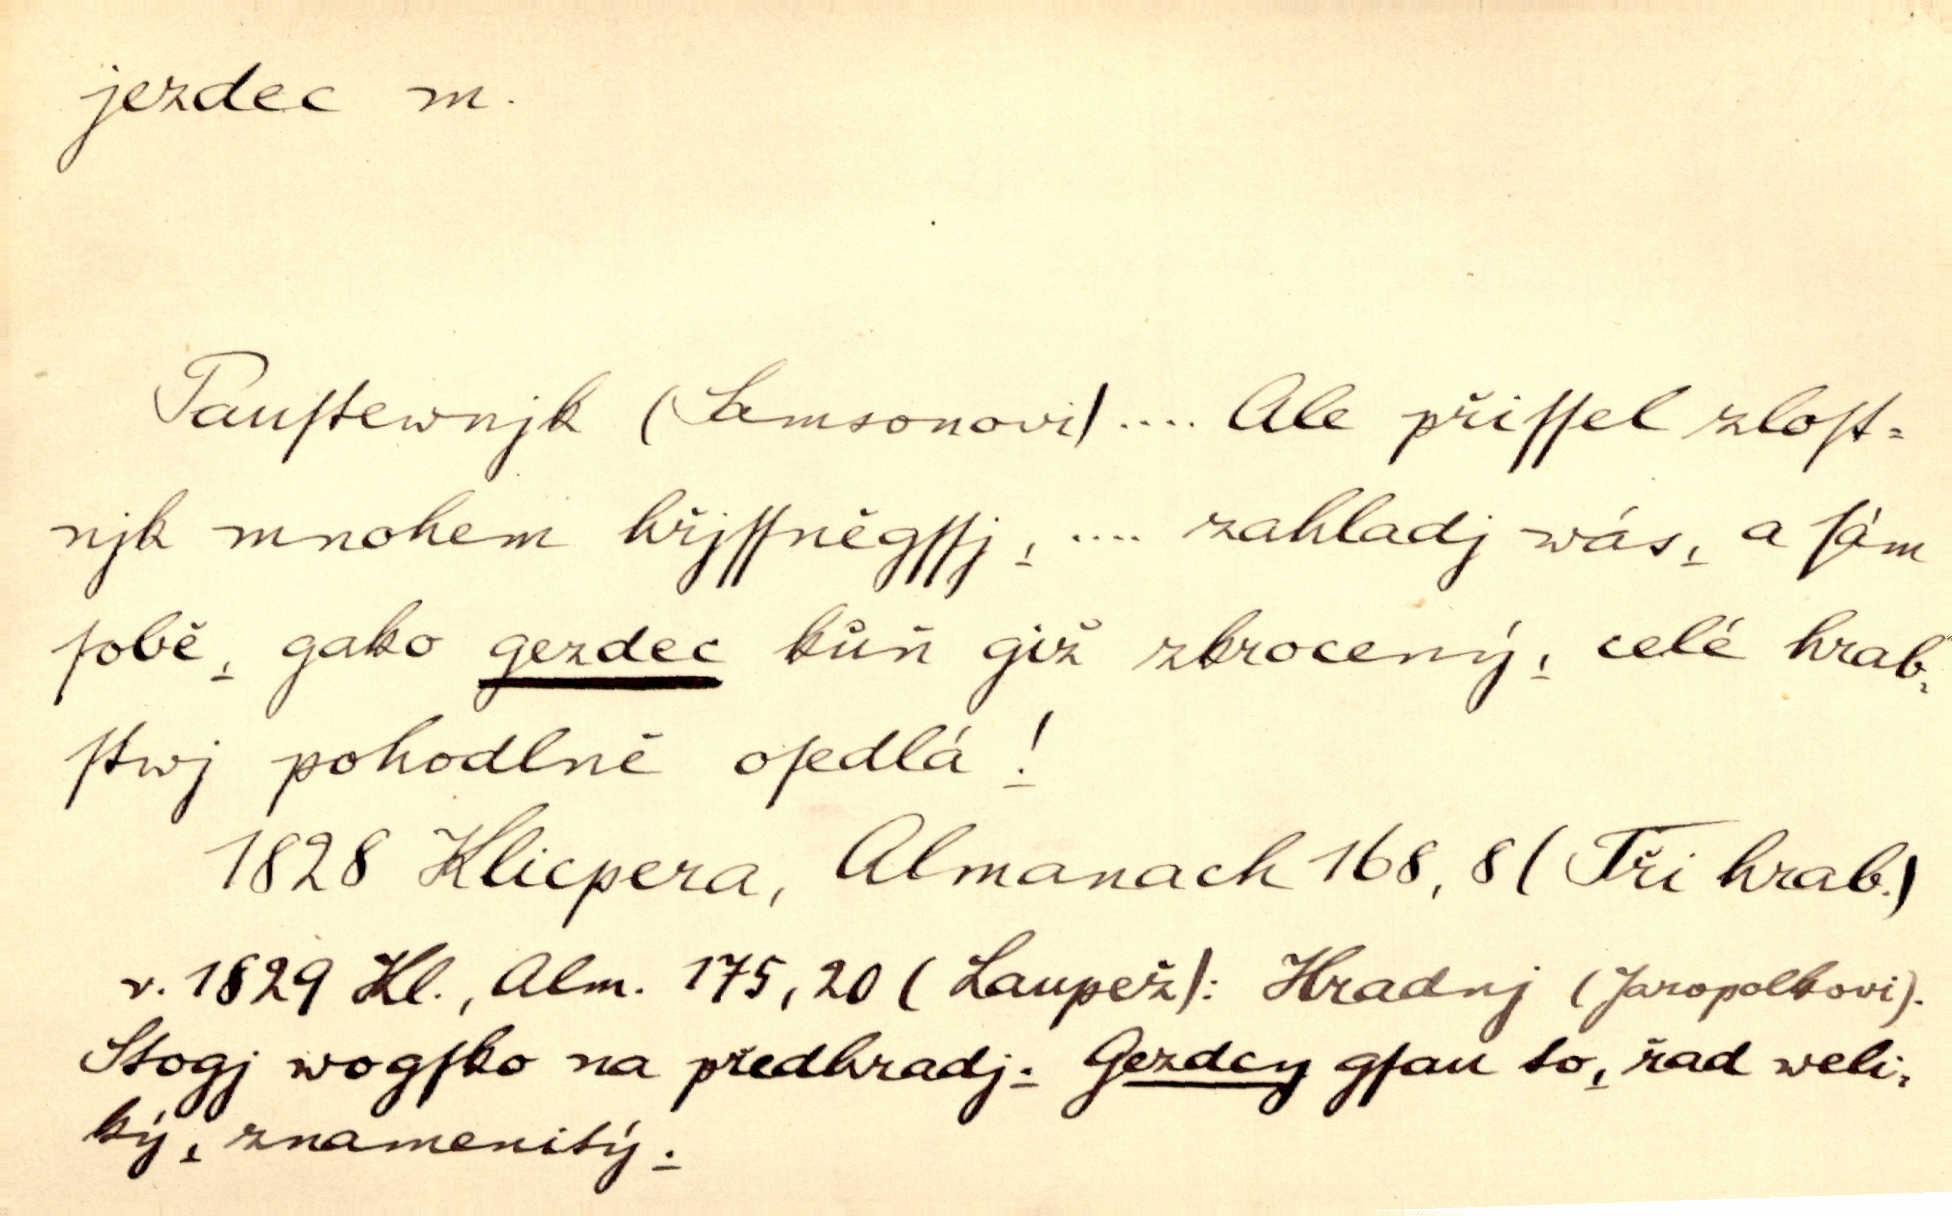 jezdec m.
Pauſtewnjk (Samsonovi) .... Ale přiſſel zloſt-
njk mnohem hřjſſněgſſj, .... zahladj wás, a ſám
ſobě, gako gezdec kůň giž zkrocený, celé hrab-
ſtwj pohodlně oſedlá!
1828 Klicpera, Almanach 168, 8 (Tři hrab.)
v. 1829 Kl., Alm. 175, 20 (Laupež): Hradnj (Jaropolkovi).
Stogj wogſko na předhradj. Gezdcy gſau to, řad weli-
ký, znamenitý.